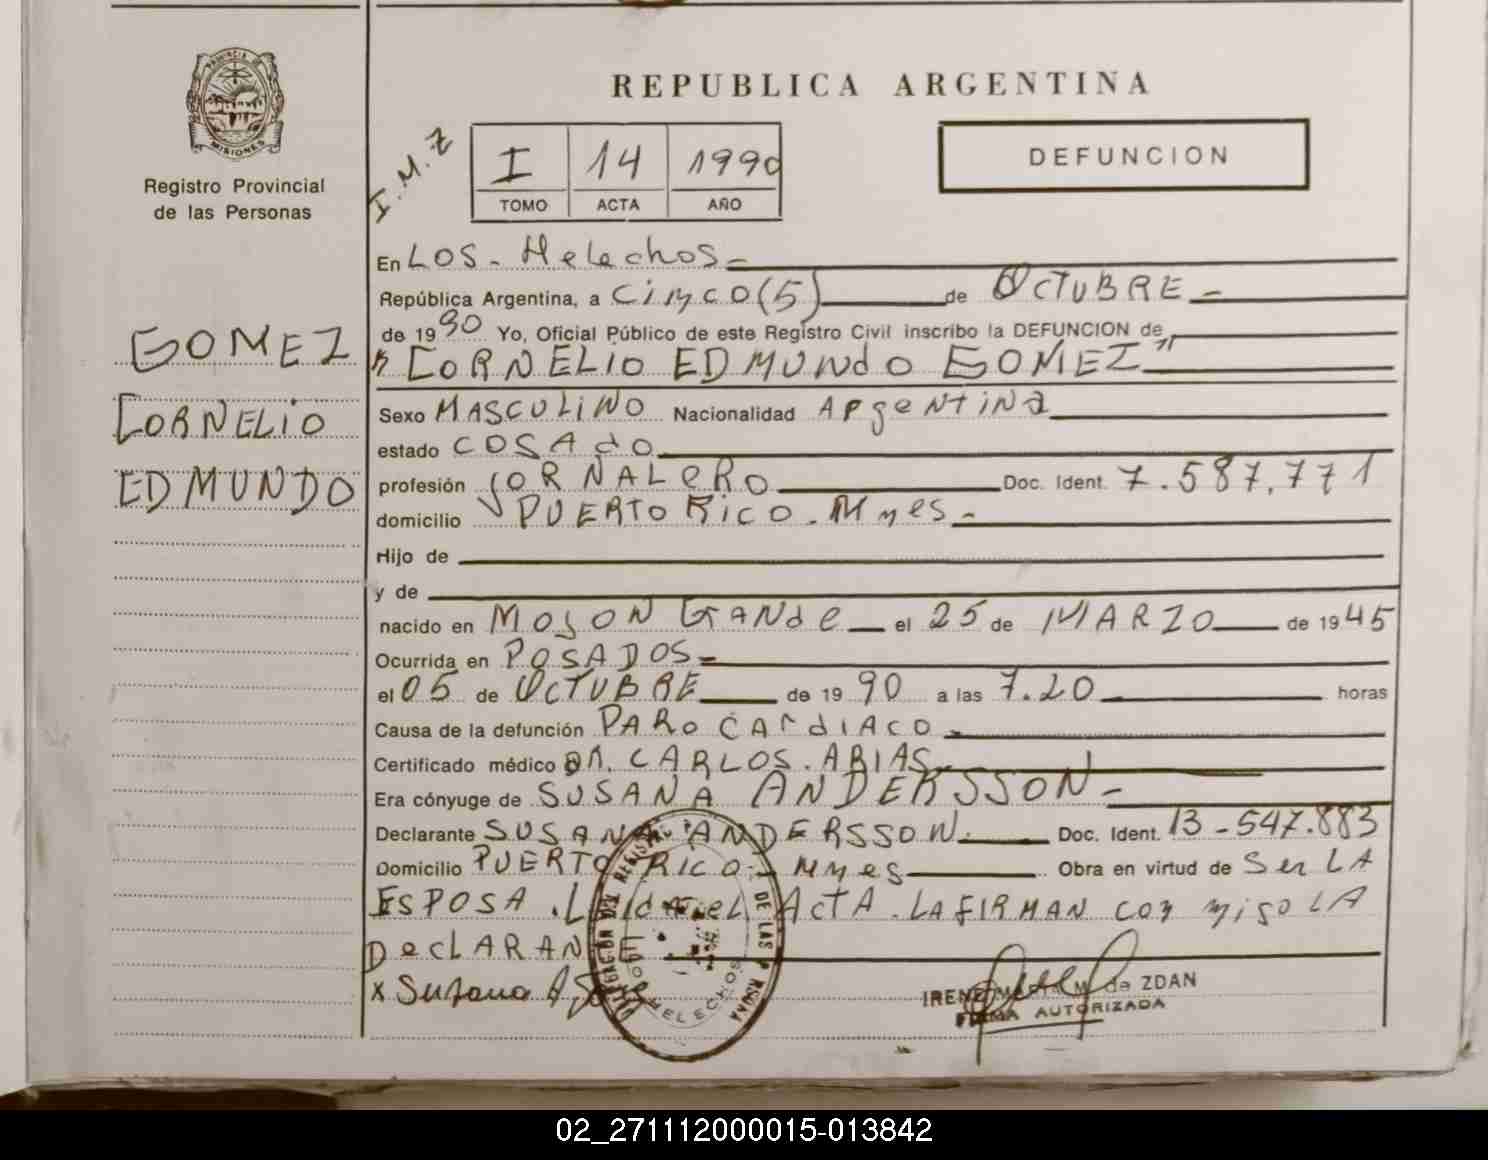 PROVINCIA DE
MISIONES
Registro Provincial
de las Personas
GOMEZ
CORNELIO
EDMUNDO
REPUBLICA ARGENTINA
I.M.Z
I 14 1990
TOMO ACTA AÑO
DEFUNCION
En LOS - Helechos -
República Argentina, a Cinco (5) de OCTUBRE -
de 1990 Yo, Oficial Público de este Registro Civil inscribo la DEFUNCION de
"CORNELIO EDMUNDO GOMEZ"
Sexo MASCULINO Nacionalidad Argentina
estado COSAdO
profesión JORNALeRO Doc. Ident. 7.587.771
domicilio PUERTO RICO. Mnes -
Hijo de
y de
nacido en MOJON GRANde el 25 de MARZO de 1945
Ocurrida en POSADOS -
el 05 de OCTUBRE de 1990 a las 7.20 horas
Causa de la defunción PARO CArdIACO -
Certificado médico DR. CARLOS. ARIAS -
Era cónyuge de SUSANA ANDERSSON -
Declarante SUSANA ANDERSSON. Doc. Ident. 13-547.883
Domicilio PUERTO RICO - Mnes Obra en virtud de Ser LA
ESPOSA. Leida el ACTA. LA FIRMAN con migo LA
DecLARANTE
x Susana
DELEGACION DEL REGISTRO DE LAS PERSONAS
HELECHOS
IRENE M. de ZDAN
FIRMA AUTORIZADA
02_271112000015-013842